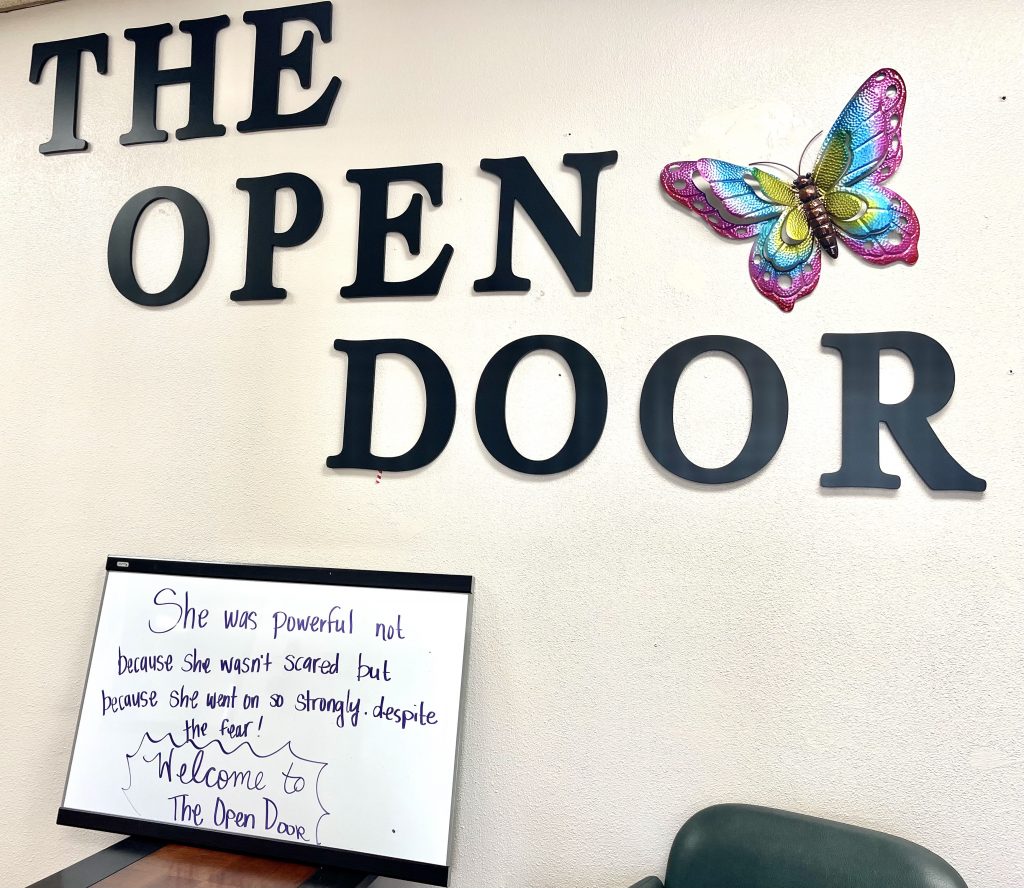 THE
OPEN
DOOR
She was powerful not
because she wasn't scared but
because she went on so strongly. despite
the fear!
Welcome to
The Open Door